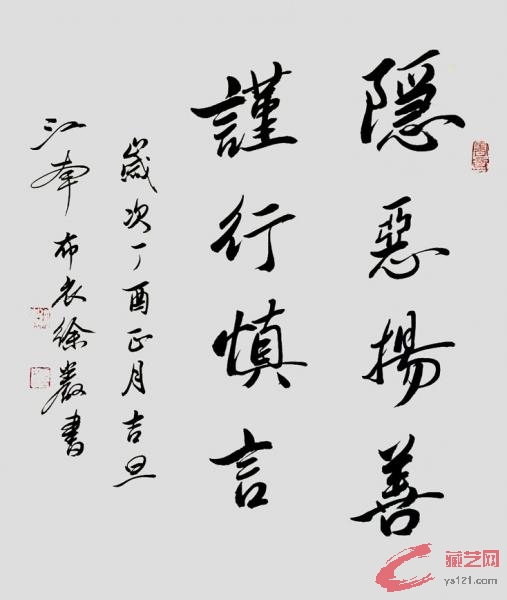 隐惡揚善
謹行慎言
歲次丁酉正月吉旦
江南布衣徐嚴書
藏艺网
ys121.com